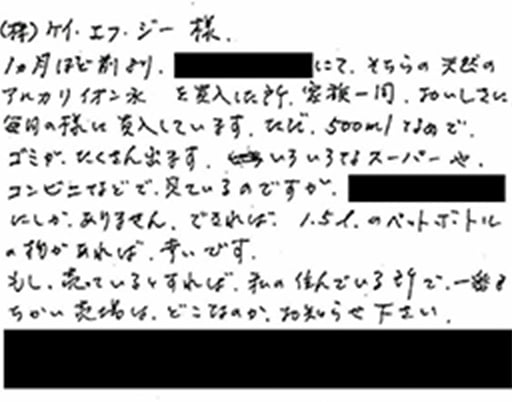 (株)ケイ・エフ・ジー様.
1ヵ月ほど前より、にて、そちらの天然の
アルカリイオン水 を買入した所、家族一同、おいしさに
毎日の様に買入しています。ただ、500mlなので、
ゴミが、たくさん出ます。いろいろなスーパーや、
コンビニなどで、見ているのですが、
にしか、ありません。できれば、1.5l.のペットボトル
の物があれば、幸いです。
もし、売っているとすれば、私の住んでいる所で、一番
ちかい売場は、どこなのか、お知らせ下さい。